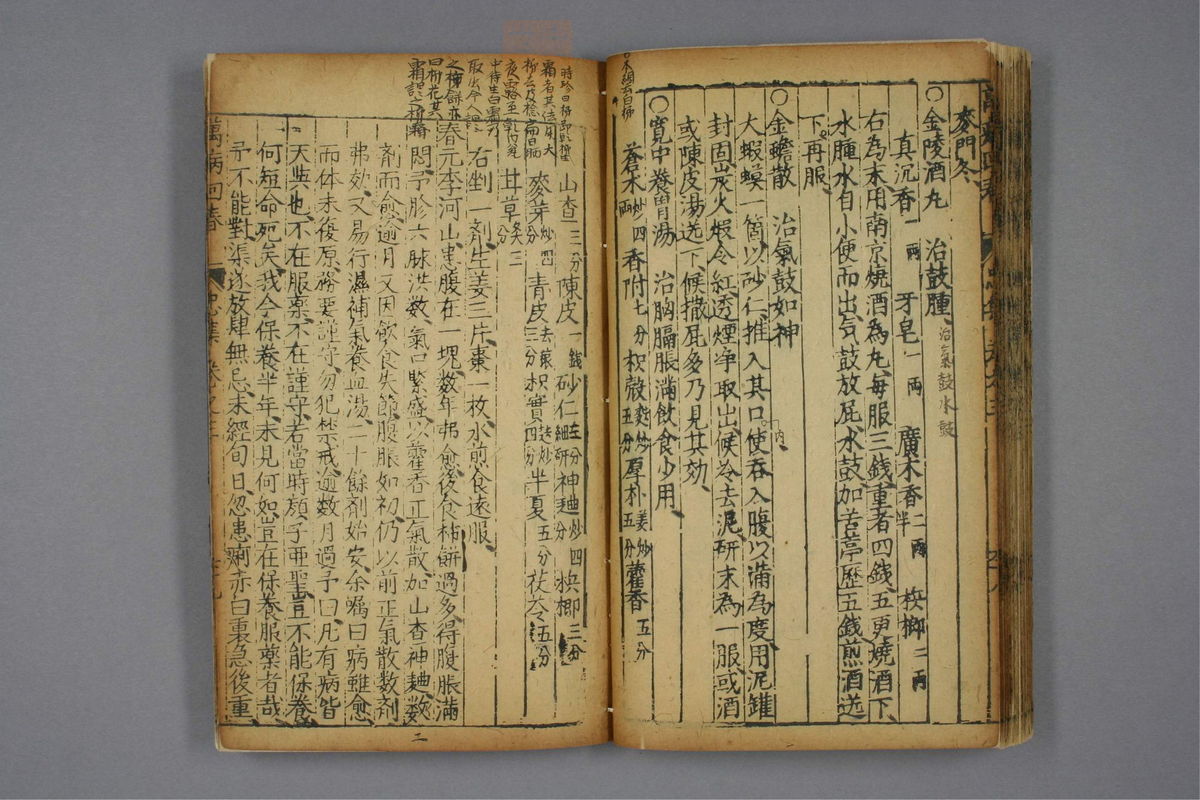 麥門冬
○金陵酒丸　治鼓腫　治氣鼓水鼓
真沉香一兩　牙皂一兩　廣木香二兩半　梹榔二兩
右為末用南京燒酒為丸每服三錢重者四錢五更燒酒下
水腫水自小便而出氣鼓放屁水鼓加苦葶歷五錢煎酒送
下再服
○金蟾散　治氣鼓如神
大蝦蟆一箇以砂仁推入其口使吞入腹以滿為度用泥罐
封固炭火煅令紅透煙淨取出候冷去泥研末為一服或酒
或陳皮湯送下候撒屁多乃見其効
○寬中養胃湯　治胸膈脹滿飲食少用
蒼朮炒四兩香附七分枳殼麩炒五分厚朴姜炒五分藿香五分
山查三分陳皮一錢砂仁細研五分神麯炒四分梹榔三分
麥芽炒四分青皮去穰三分枳實麩炒四分半夏五分茯苓五分
甘草炙三分
右剉一劑生姜三片棗一枚水煎食遠服
春元李河山患腹左一塊数年弗愈後食柿餅過多得腹脹滿
悶予胗六脉洪数氣口緊盛以藿香正氣散加山查神麯数
劑而愈逾月又因飲食失節腹脹如初仍以前正氣散数劑
弗効又易行濕補氣養血湯二十餘劑始安余囑曰病雖愈
而体未復原務要謹守勿犯禁戒逾数月過予曰凡有病皆
天與也不在服藥不在謹守若當時顏子亜聖豈不能保養
何短命死矣我今保養半年未見何如豈在保養服藥者哉
予不能對渠遂放肆無忌未經旬日忽患痢亦曰裏急後重
萬病回春
忠集
二